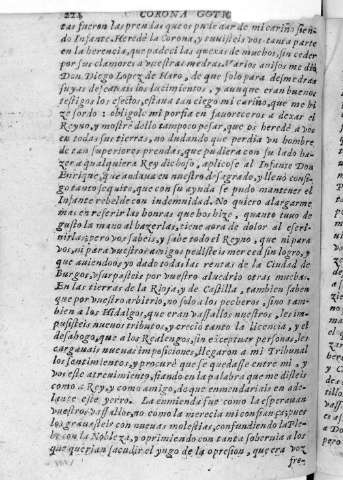 224 CORONA GOTIC
tas fueron las prendas que os pude dar de mi cariño sien-
do Infante. Heredè la Corona, y tuvisteis vos tanta parte
en la herencia, que padeci las quexas de muchos, sin ceder
por sus clamores a vuestras medras. Varios avisos me diò
Don Diego Lopez de Haro, de que solo para desmedras
suyas deseavais los lucimientos, y aunque eran buenos
testigos los efectos, estava tan ciego mi cariño, que me hi-
ze sordo: obligole mi porfia en favoreceros a dexar el
Reyno, y mostrè dello tampoco pesar, que os heredè a vos
en todas sus tierras, no dudando que perdia un hombre
de tan superiores prendas, que pudiera con su lado ha-
zer a qualquiera Rey dichoso, aplicose al Infante Don
Enrique, que andava en nuestro desagrado, y llevò consi-
go tanto sequito, que con su ayuda se pudo mantener el
Infante rebelde con indemnidad. No quiero alargarme
mas en referir las honras que hos hize, quanto tuvo de
gusto la mano al hazerlas, tiene aora de dolor al escri-
virlas; pero vos sabeis, y sabe todo el Reyno, que ni para
vos, ni para vuestros amigos pedisteis merced sin logro, y
que aviendoos yo dado todas las rentas de la Ciudad de
Burgos, usurpasteis por vuestro aluedrio otras muchas.
En las tierras de la Rioja, y de Castilla, tambien saben
que por vuestro arbitrio, no solo a los pecheros, sino tam-
bien a los Hidalgos, que eran vassallos nuestros, les im-
pusisteis nuevos tributos, y creciò tanto la licencia, y el
desahogo, que a los Realengos, sin exceptuar personas, les
cargavais nuevas imposiciones, llegaron a mi Tribunal
los sentimientos, y procurè que se quedasse entre mi, y
vos este atrevimiento, fiando en la palabra que me disteis
como a Rey, y como amigo, de que enmendariais en ade-
lante este yerro. La enmienda fue como la esperavan
vuestros vassallos, no como la merecia mi confiança, pues
los gravasteis con nuevas molestias, confundiendo la Ple-
be con la Nobleza, y oprimiendo con tanta sobervia a los
que querian sacudir el yugo de la opresion, que era voz
fre-